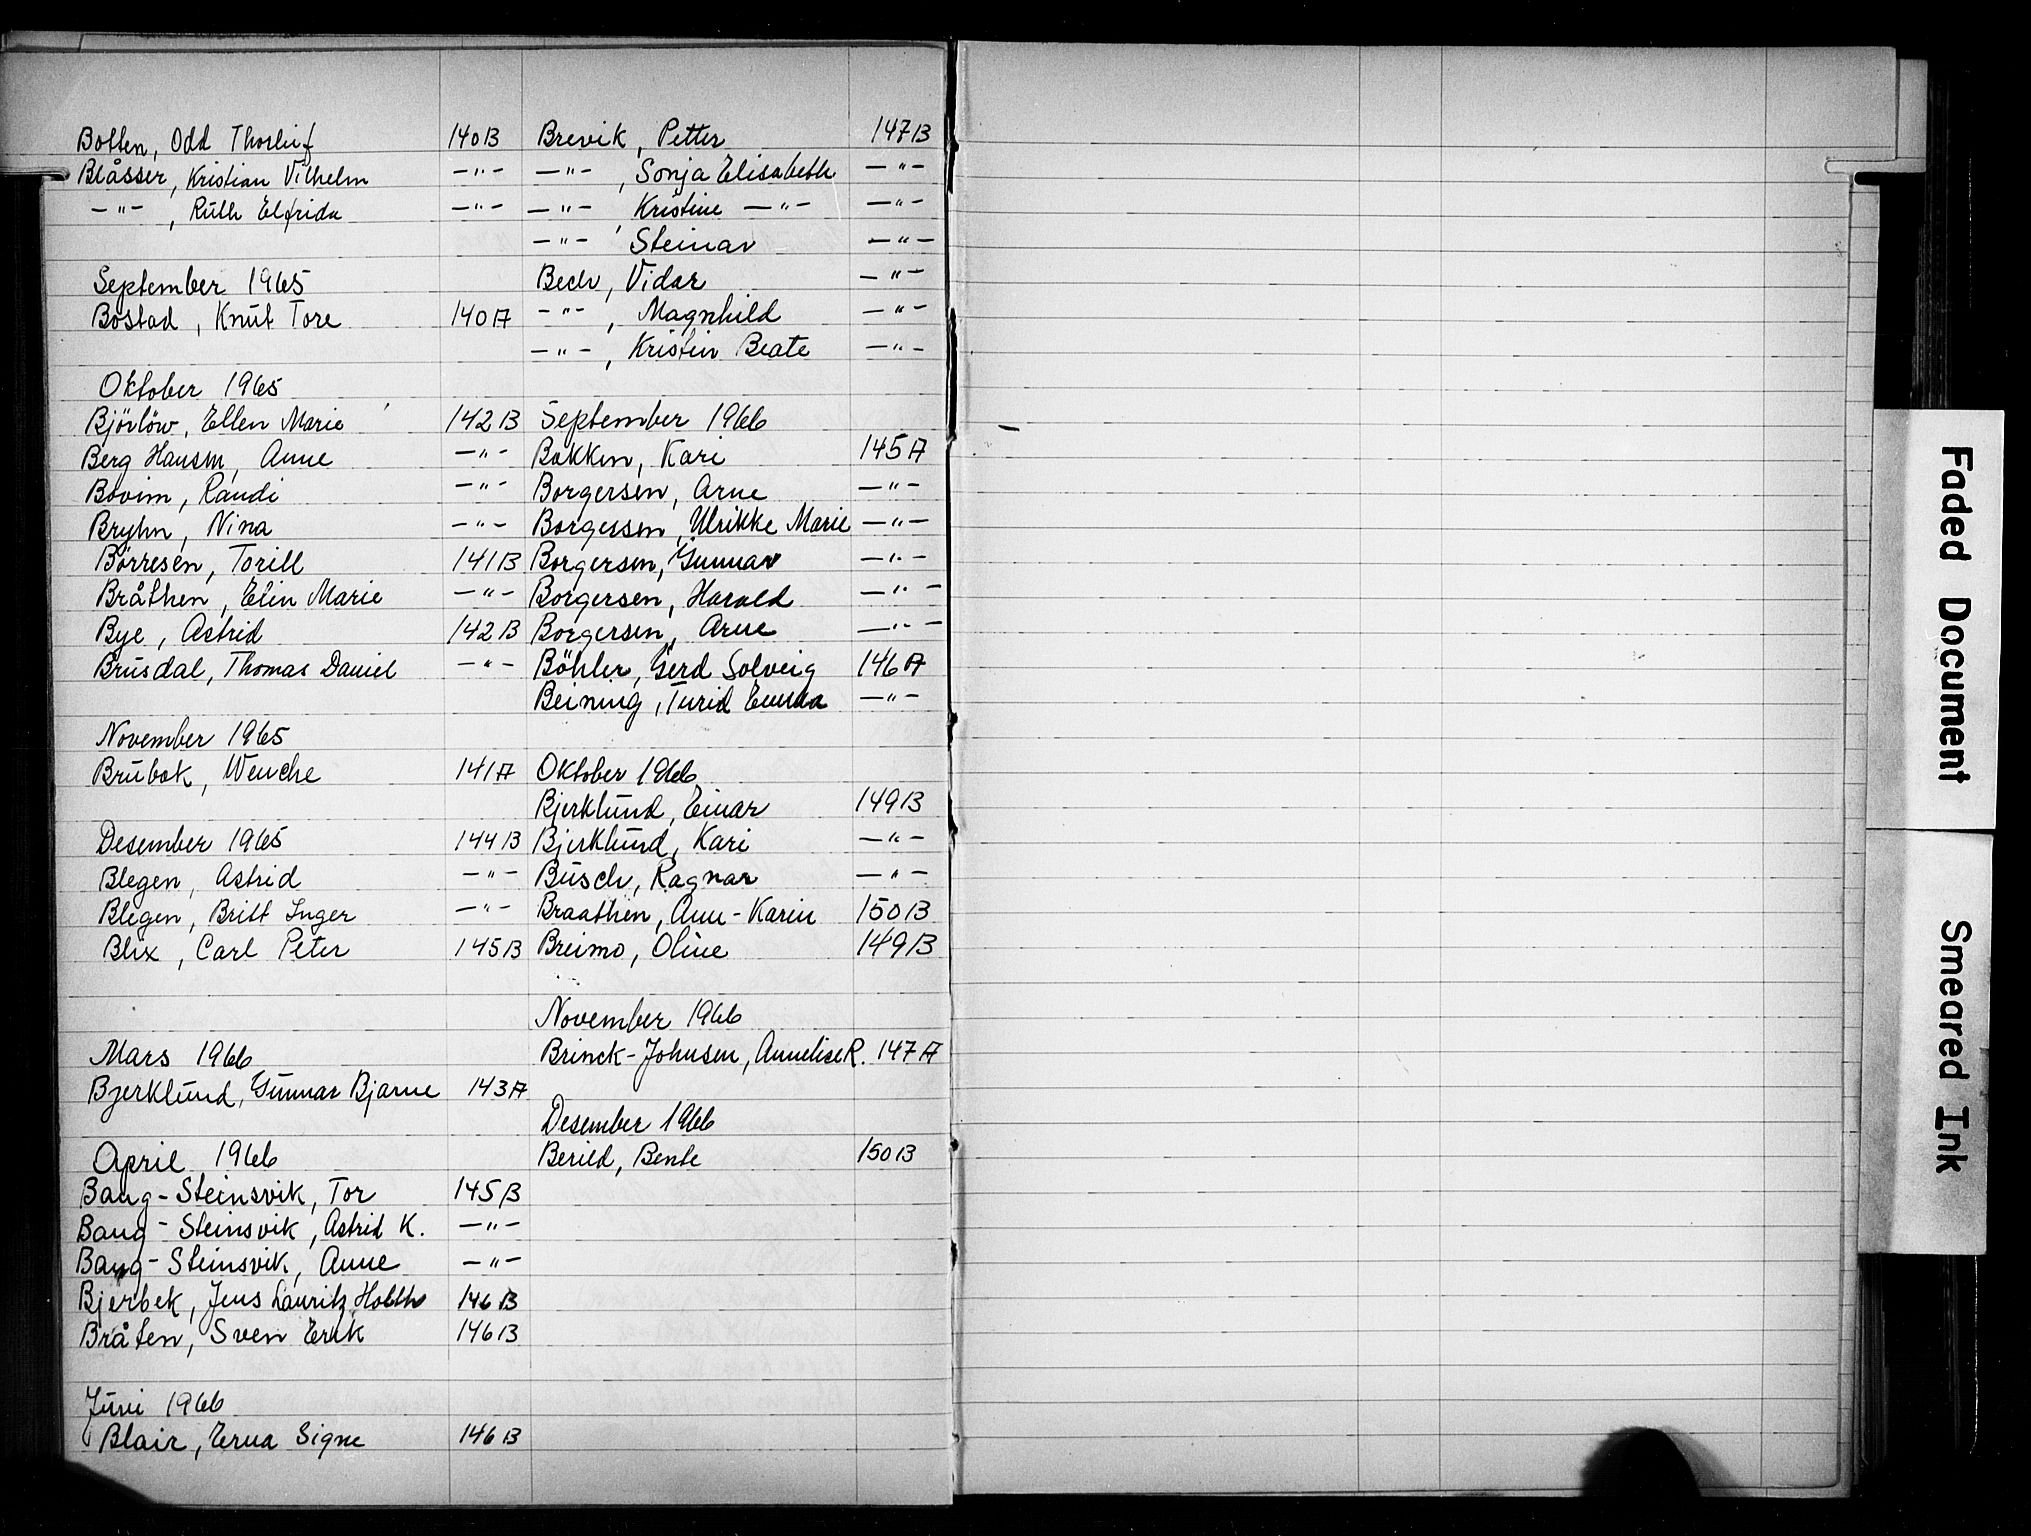 Botten, Odd Thorleif 140B
Blåsser, Kristian Vilhelm —"—
—"— , Ruth Elfrida —"—
September 1965
Bostad, Knut Tore 140A
Oktober 1965
Björlöw, Ellen Marie 142B
Berg Hansen, Anne —"—
Bovim, Randi —"—
Bryhn, Nina —"—
Børresen, Torill 141B
Bråthen, Elin Marie —"—
Bye, Astrid 142B
Brusdal, Thomas Daniel —"—
November 1965
Brubak, Wenche 141A
Desember 1965 144B
Blegen, Astrid —"—
Blegen, Britt Inger —"—
Blix, Carl Peter 145B
Mars 1966
Bjerklund, Gunnar Bjarne 143A
April 1966
Bang-Steinsvik, Tor 145B
Bang-Steinsvik, Astrid K. —"—
Bang-Steinsvik, Anne —"—
Bjerbek, Jens Lauritz Holth 146B
Bråten, Sven Erik 146B
Juni 1966
Blair, Erna Signe 146B
Brevik, Petter 147B
—"— , Sonja Elisabeth —"—
—"— , Kristine —"— —"—
—"— , Steinar —"—
Bech, Vidar —"—
—"— , Magnhild —"—
—"— , Kristin Beate —"—
September 1966
Bakken, Kari 145A
Borgersen, Arne —"—
Borgersen, Ulrikke Marie —"—
Borgersen, Gunnar —"—
Borgersen, Harald —"—
Borgersen, Arne —"—
Böhler, Gerd Solveig 146A
Beining, Turid Emma —"—
Oktober 1966
Bjerklund, Einar 149B
Bjerklund, Kari —"—
Busch, Ragnar —"—
Braathen, Ann-Karin 150B
Breimo, Oline 149B
November 1966
Brinck-Johnsen, Annelise R. 147A
Desember 1966
Berild, Bente 150B
Faded Document
Smeared Ink